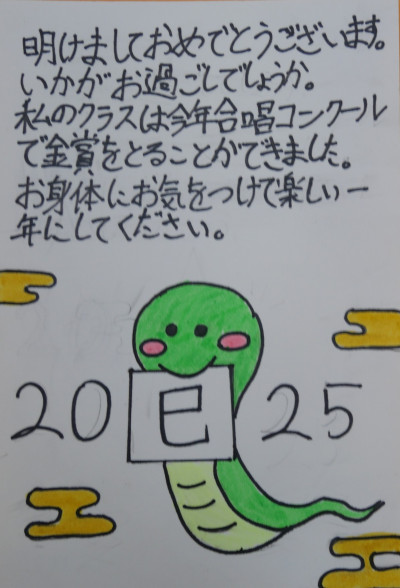 明けましておめでとうございます。
いかがお過ごしでしょうか。
私のクラスは今年合唱コンクール
で金賞をとることができました。
お身体にお気をつけて楽しい一
年にしてください。
20 巳 25